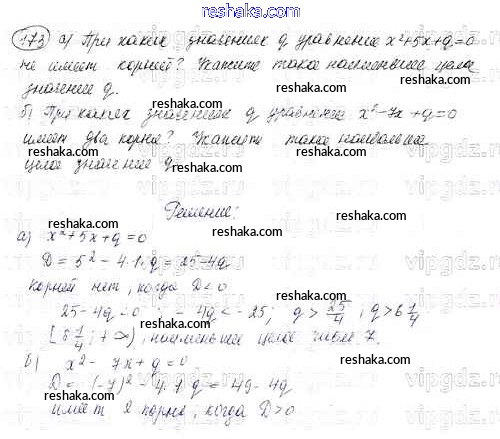 reshaka.com
173 а) При каких значениях q уравнение x²+5x+q=0
не имеет корней? Укажите такое наименьшее целое
значение q.
б) При каких значениях q уравнение x²-7x+q=0
имеет два корня? Укажите такое наибольшее
целое значение q
reshaka.com reshaka.com
Решение:
reshaka.com
а) x²+5x+q=0
D = 5² - 4·1·q = 25-4q
reshaka.com
корней нет, когда D<0
reshaka.com reshaka.com
25-4q=0; -4q<-25; q > 25/4; q>6 1/4
[6 1/4; +∞), наименьшее целое число 7.
reshaka.com
б) x² - 7x + q = 0
reshaka.com
D = (-7)² - 4·1·q = 49-4q
имеет 2 корня, когда D>0
reshaka.com